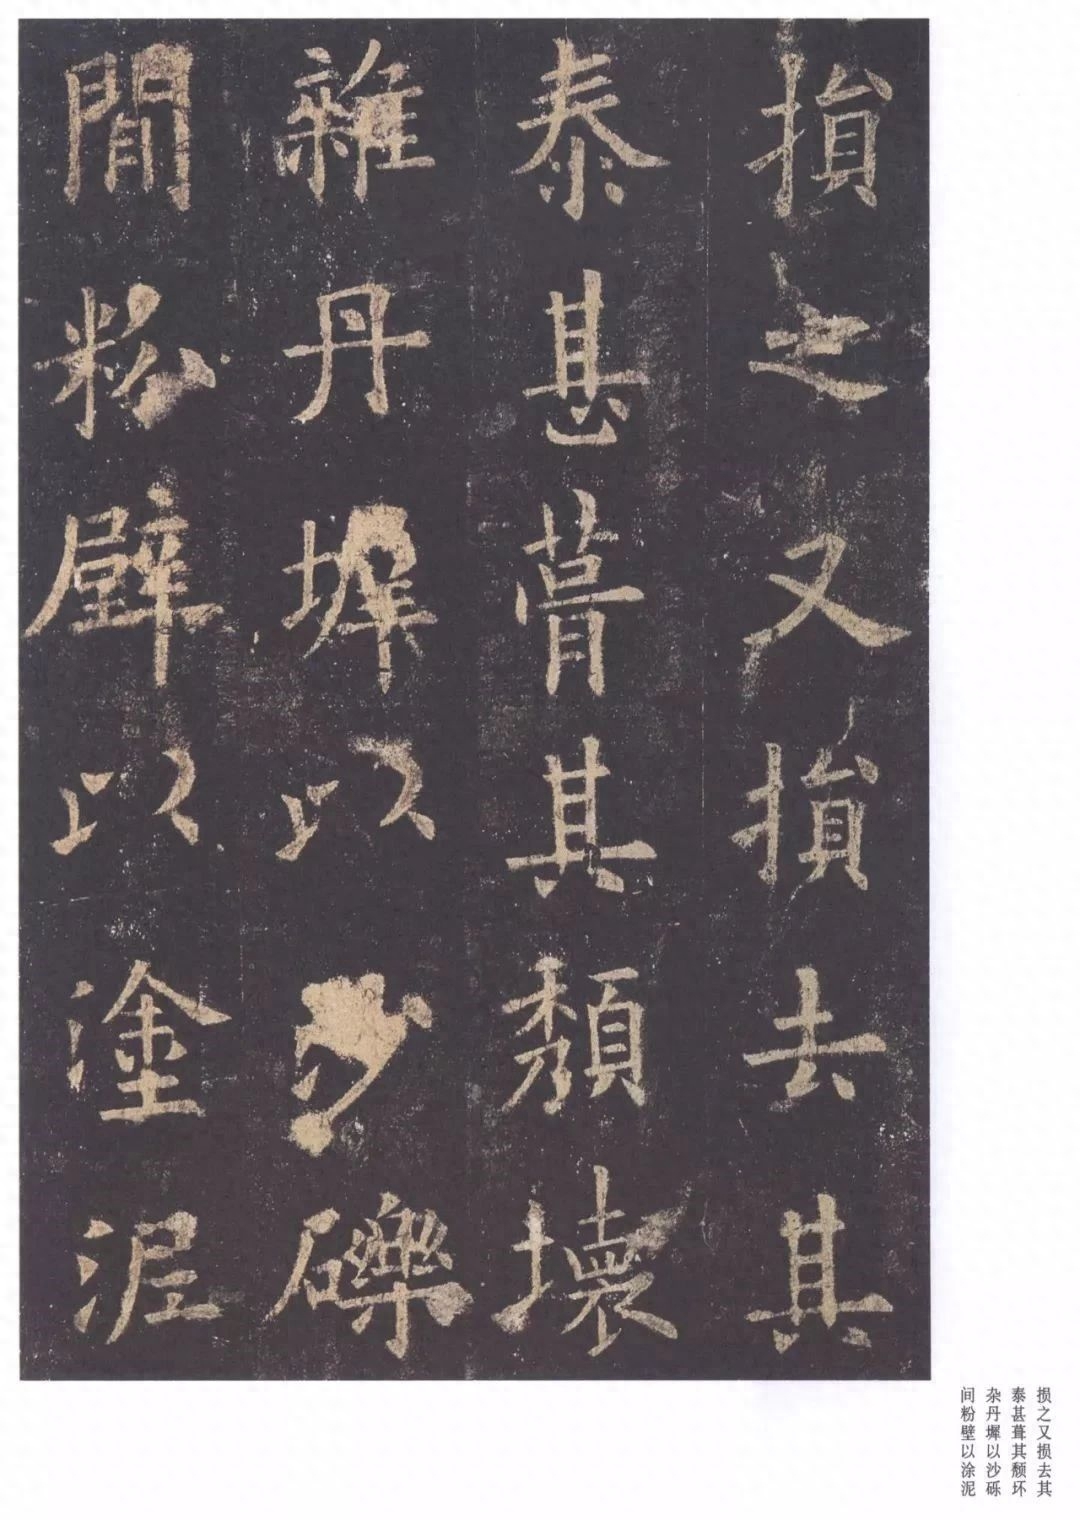 損之又損去其
泰甚葺其頹壞
雜丹墀以沙礫
間粉壁以塗泥
损之又损去其
泰甚葺其颓坏
杂丹墀以沙砾
间粉壁以涂泥